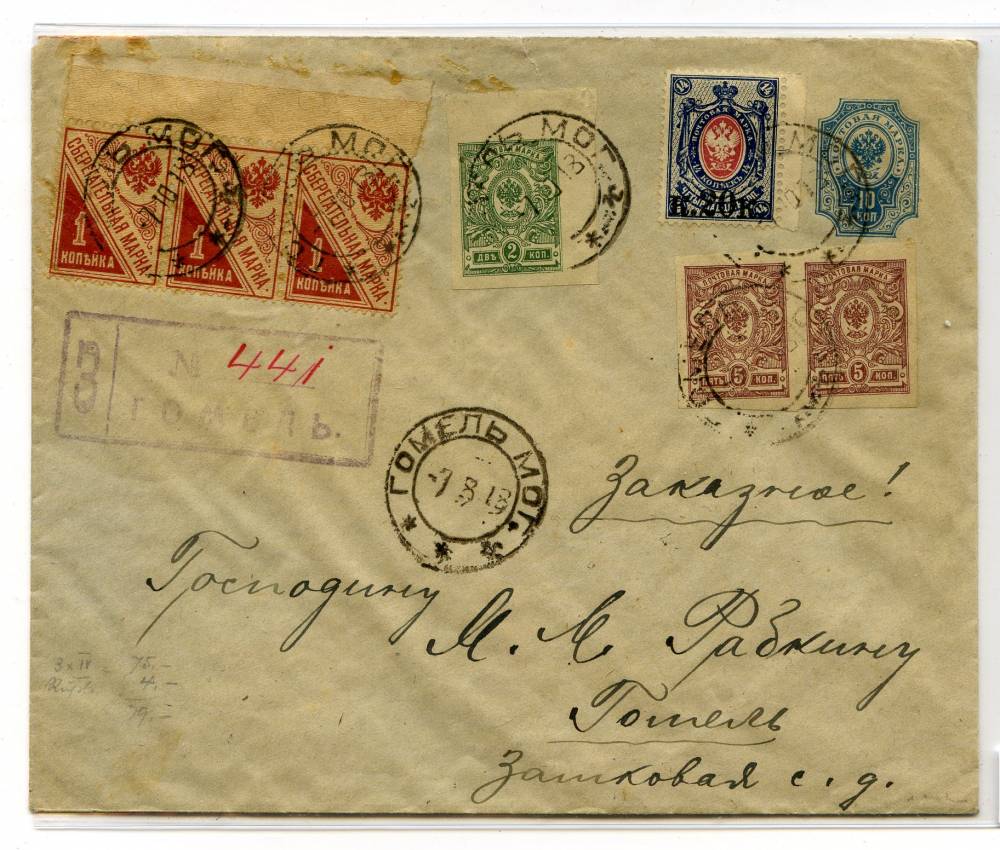 СБЕРЕГАТЕЛЬНАЯ МАРКА
1
КОПѢЙКА
СБЕРЕГАТЕЛЬНАЯ МАРКА
1
КОПѢЙКА
СБЕРЕГАТЕЛЬНАЯ МАРКА
1
КОПѢЙКА
ДВѢ 2 КОП.
14 14
ПОЧТОВАЯ МАРКА
14 КОПѢЕКЪ 14
к. 20 к.
ПОЧТОВАЯ МАРКА
10
КОП
ПОЧТОВАЯ МАРКА
ПЯТЬ 5 КОП.
ПОЧТОВАЯ МАРКА
ПЯТЬ 5 КОП.
З
N 441
ГОМЕЛЬ.
ГОМЕЛЬ МОГ.
-7 8 18
Заказное!
Господину
М. М. Рабкину
Гомель
Замковая с. д.
3 x IV 75.-
4.-
79.-